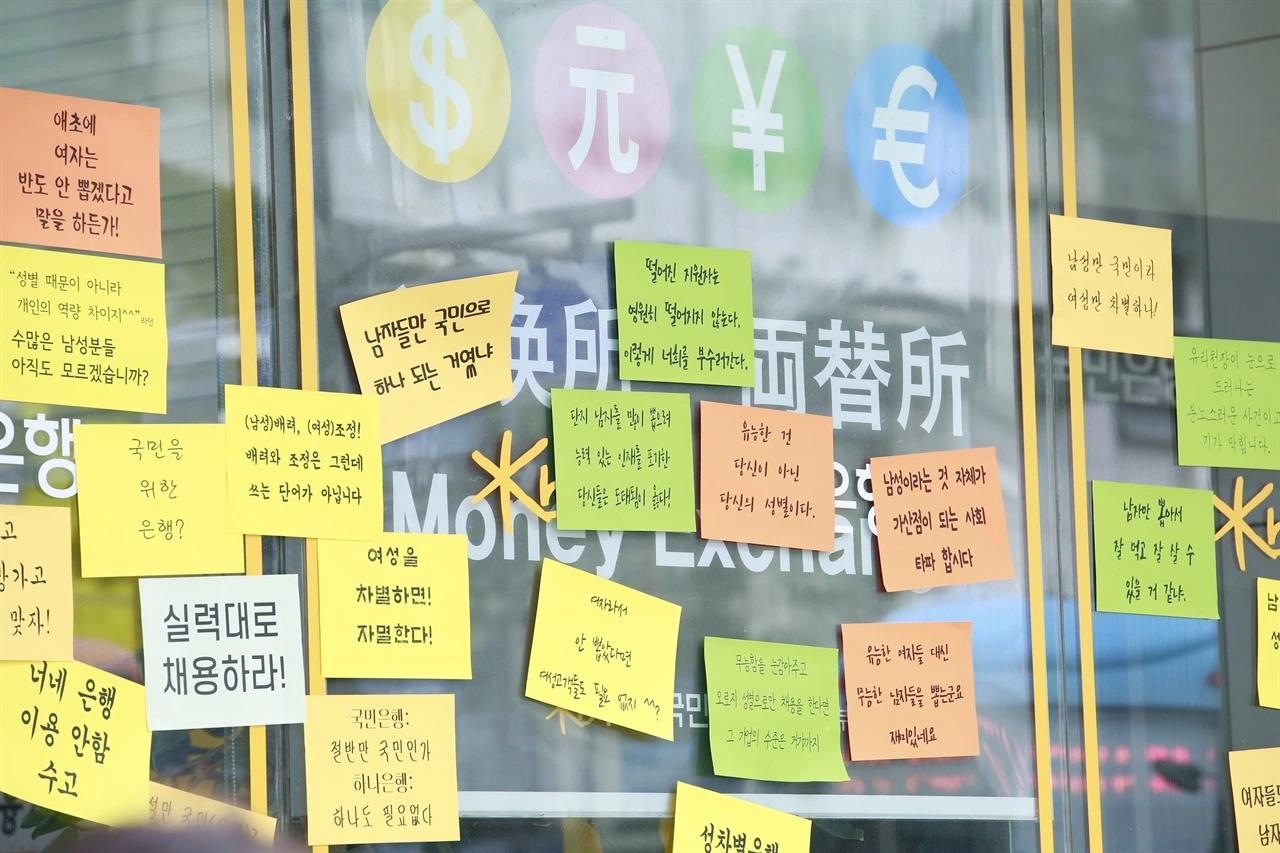 $ 元 ¥ €
애초에
여자는
반도 안 뽑겠다고
말을 하든가!
"성별 때문이 아니라
개인의 역량 차이지^^"라던
수많은 남성분들
아직도 모르겠습니까?
은행
국민을
위한
은행?
(남성)배려, (여성)조정!
배려와 조정은 그런데
쓰는 단어가 아닙니다
남자들만 국민으로
하나 되는 거였냐
떨어진 지원자는
영원히 떨어지지 않는다.
이렇게 너희를 부수러간다.
換所
両替所
Money Exchan
단지 남자를 많이 뽑으려
능력 있는 인재를 포기한
당신들은 도태됨이 옳다!
유능한 건
당신이 아닌
당신의 성별이다.
남성이라는 것 자체가
가산점이 되는 사회
타파 합시다
남성만 국민이라
여성만 차별하나!
유리천장이 눈으로
드러나는
분노스러운 사건이고
기가 막힙니다.
남자만 뽑아서
잘 먹고 잘 살 수
있을 거 같냐.
고
망가고
맞자!
실력대로
채용하라!
여성을
차별하면!
자멸한다!
여자라서
안 뽑았다면
여성고객들도 필요 없지 ^^?
무능함을 눈감아주고
오로지 성별으로만 채용을 한다면
그 기업의 수준은 거기까지
유능한 여자들 대신
무능한 남자들을 뽑는군요
재미있네요
너네 은행
이용 안함
수고
국민은행:
절반만 국민인가
하나은행:
하나도 필요없다
성만 국민
국민
성차별은행
여자들도
남자